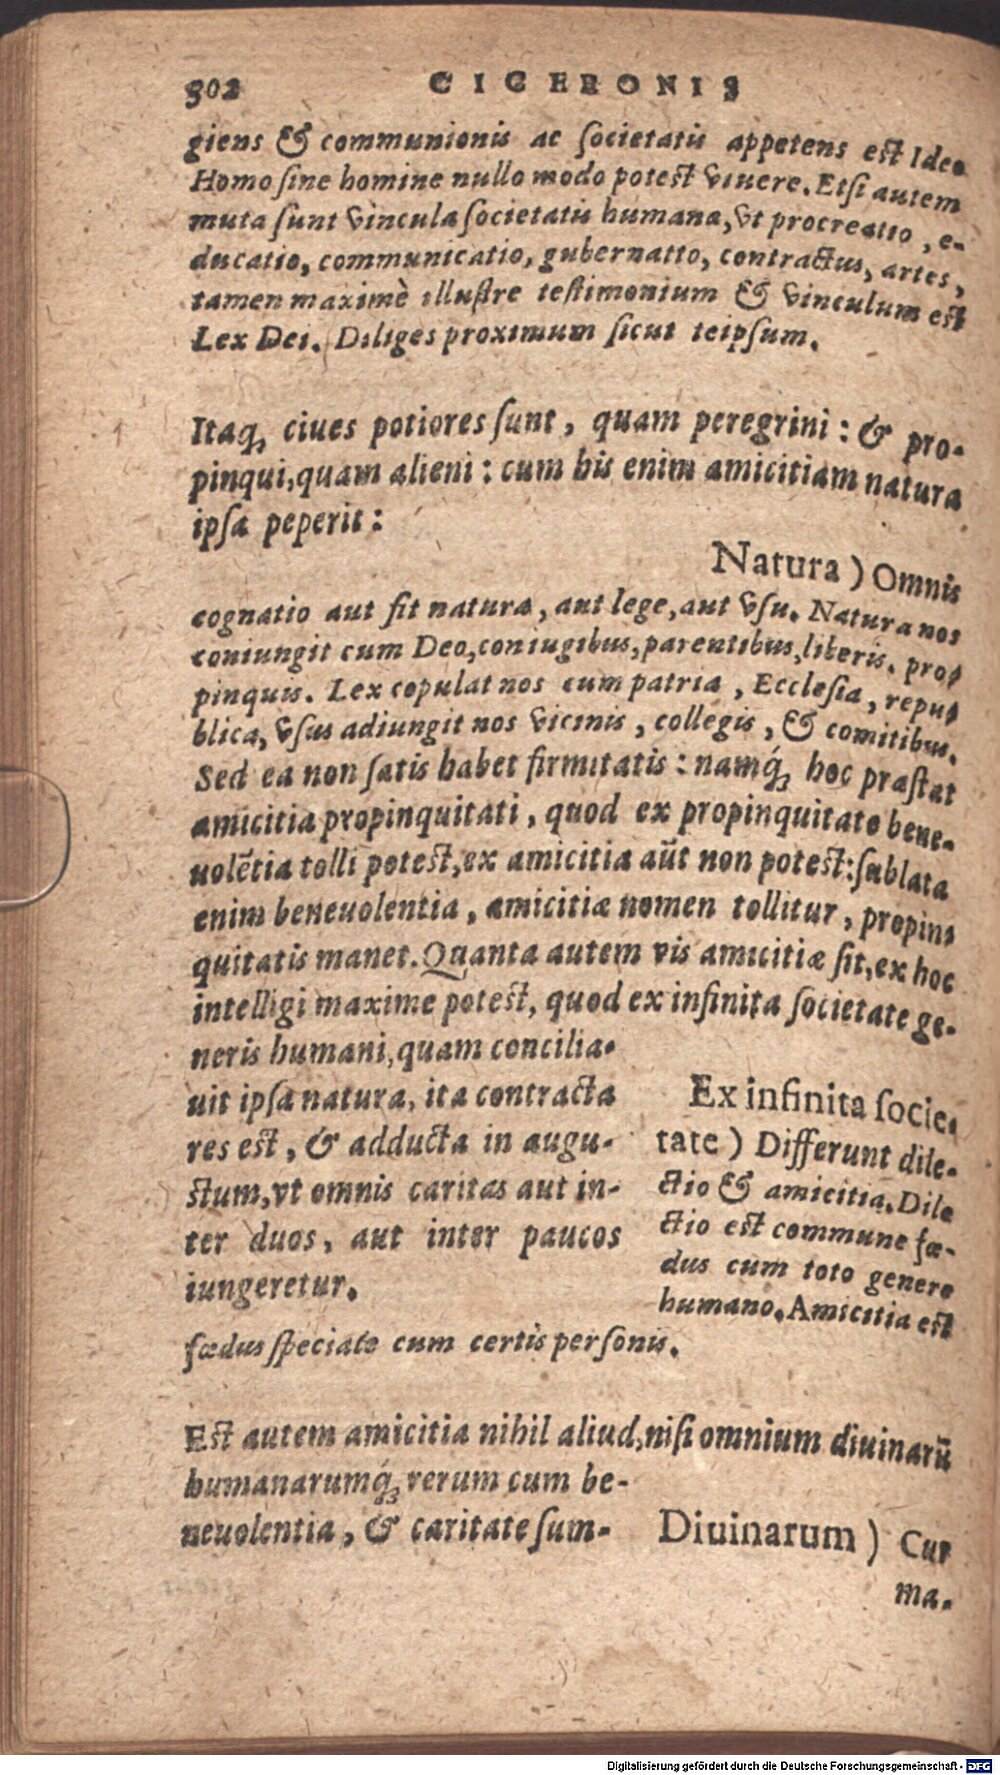 302 CICERONIS
giens & communionis ac ſocietatis appetens eſt Ideo
Homo ſine homine nullo modo poteſt viuere. Etſi autem
muta ſunt vincula ſocietatis humana, vt procreatio, e-
ducatio, communicatio, gubernatto, contractus, artes,
tamen maximè illuſtre teſtimonium & vinculum eſt
Lex Dei. Diliges proximum ſicut teipſum.
Itaq; ciues potiores ſunt, quam peregrini: & pro-
pinqui, quam alieni: cum his enim amicitiam natura
ipſa peperit:
Natura) Omnis
cognatio aut fit natura, aut lege, aut vſu. Natura nos
coniungit cum Deo, coniugibus, parentibus, liberis, pro-
pinquis. Lex copulat nos cum patria, Eccleſia, repu-
blica, vſus adiungit nos vicinis, collegis, & comitibus.
Sed ea non ſatis habet firmitatis: namq́; hoc præſtat
amicitia propinquitati, quod ex propinquitate bene-
uolētia tolli poteſt, ex amicitia aūt non poteſt: ſublata
enim beneuolentia, amicitiæ nomen tollitur, propin-
quitatis manet. Quanta autem vis amicitiæ ſit, ex hoc
intelligi maxime poteſt, quod ex infinita ſocietate ge-
neris humani, quam concilia-
uit ipſa natura, ita contracta
res eſt, & adducta in angu-
ſtum, vt omnis caritas aut in-
ter duos, aut inter paucos
iungeretur.
Ex infinita ſocie-
tate) Differunt dile-
ctio & amicitia. Dile
ctio eſt commune fœ-
dus cum toto genere
humano. Amicitia eſt
fœdus ſpeciale cum certis perſonis.
Eſt autem amicitia nihil aliud, niſi omnium diuinarū
humanarumq́; rerum cum be-
neuolentia, & caritate ſum-
Diuinarum) Cur
ma-
Digitalisierung gefördert durch die Deutsche Forschungsgemeinschaft - DFG